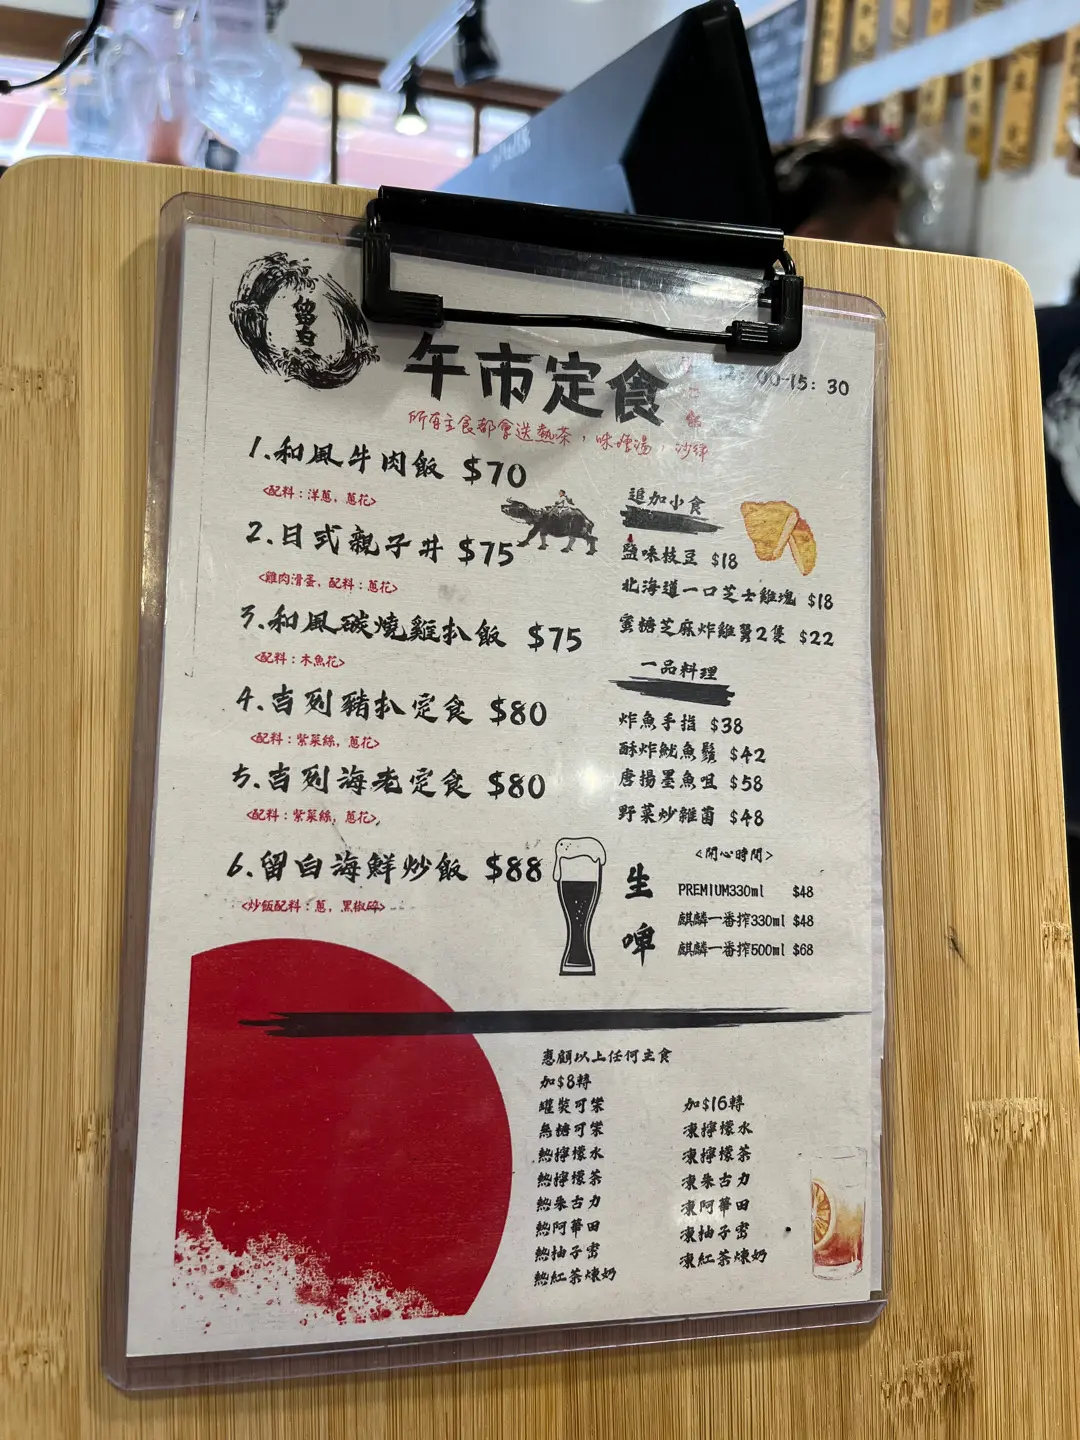 留白
午市定食
12:00-15:30
所有主食都會送熱茶，味噌湯，沙律
1.和風牛肉飯 $70
<配料：洋蔥，蔥花>
2.日式親子丼 $75
<雞肉滑蛋，配料：蔥花>
3.和風碳燒雞扒飯 $75
<配料：木魚花>
4.吉列豬扒定食 $80
<配料：紫菜絲，蔥花>
5.吉列海老定食 $80
<配料：紫菜絲，蔥花>
6.留白海鮮炒飯 $88
<炒飯配料：蔥，黑椒碎>
追加小食
鹽味枝豆 $18
北海道一口芝士雞塊 $18
蜜糖芝麻炸雞翼2隻 $22
一品料理
炸魚手指 $38
酥炸魷魚鬚 $42
唐揚墨魚咀 $58
野菜炒雜菌 $48
<開心時間>
生啤
PREMIUM330ml $48
麒麟一番搾330ml $48
麒麟一番搾500ml $68
惠顧以上任何主食
加$8轉
罐裝可樂
無糖可樂
熱檸檬水
熱檸檬茶
熱朱古力
熱阿華田
熱柚子蜜
熱紅茶煉奶
加$16轉
凍檸檬水
凍檸檬茶
凍朱古力
凍阿華田
凍柚子蜜
凍紅茶煉奶